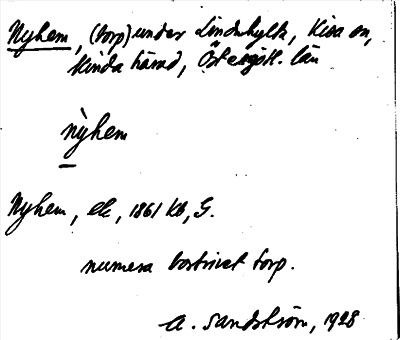 Nyhem, (torp) under Lindhylta, Kisa sn,
Kinda härad, Östergötl. län
nỳhem
Nyhem, ek, 1861 Kb, G.
numera bortrivet torp.
A. Sandström, 1928